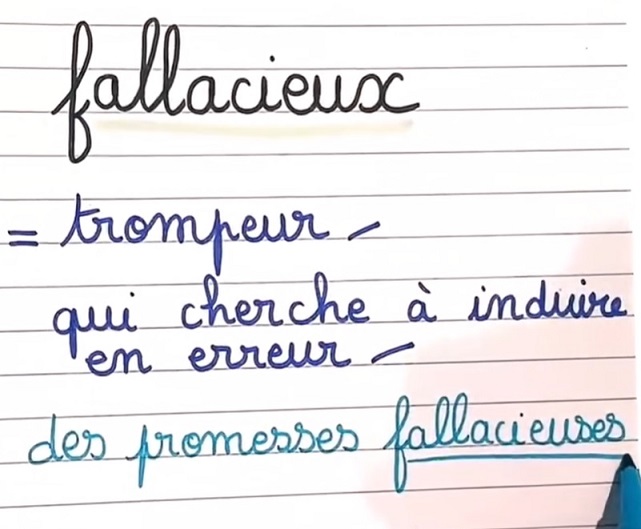 fallacieux
= trompeur -
qui cherche à induire
en erreur -
des promesses fallacieuses